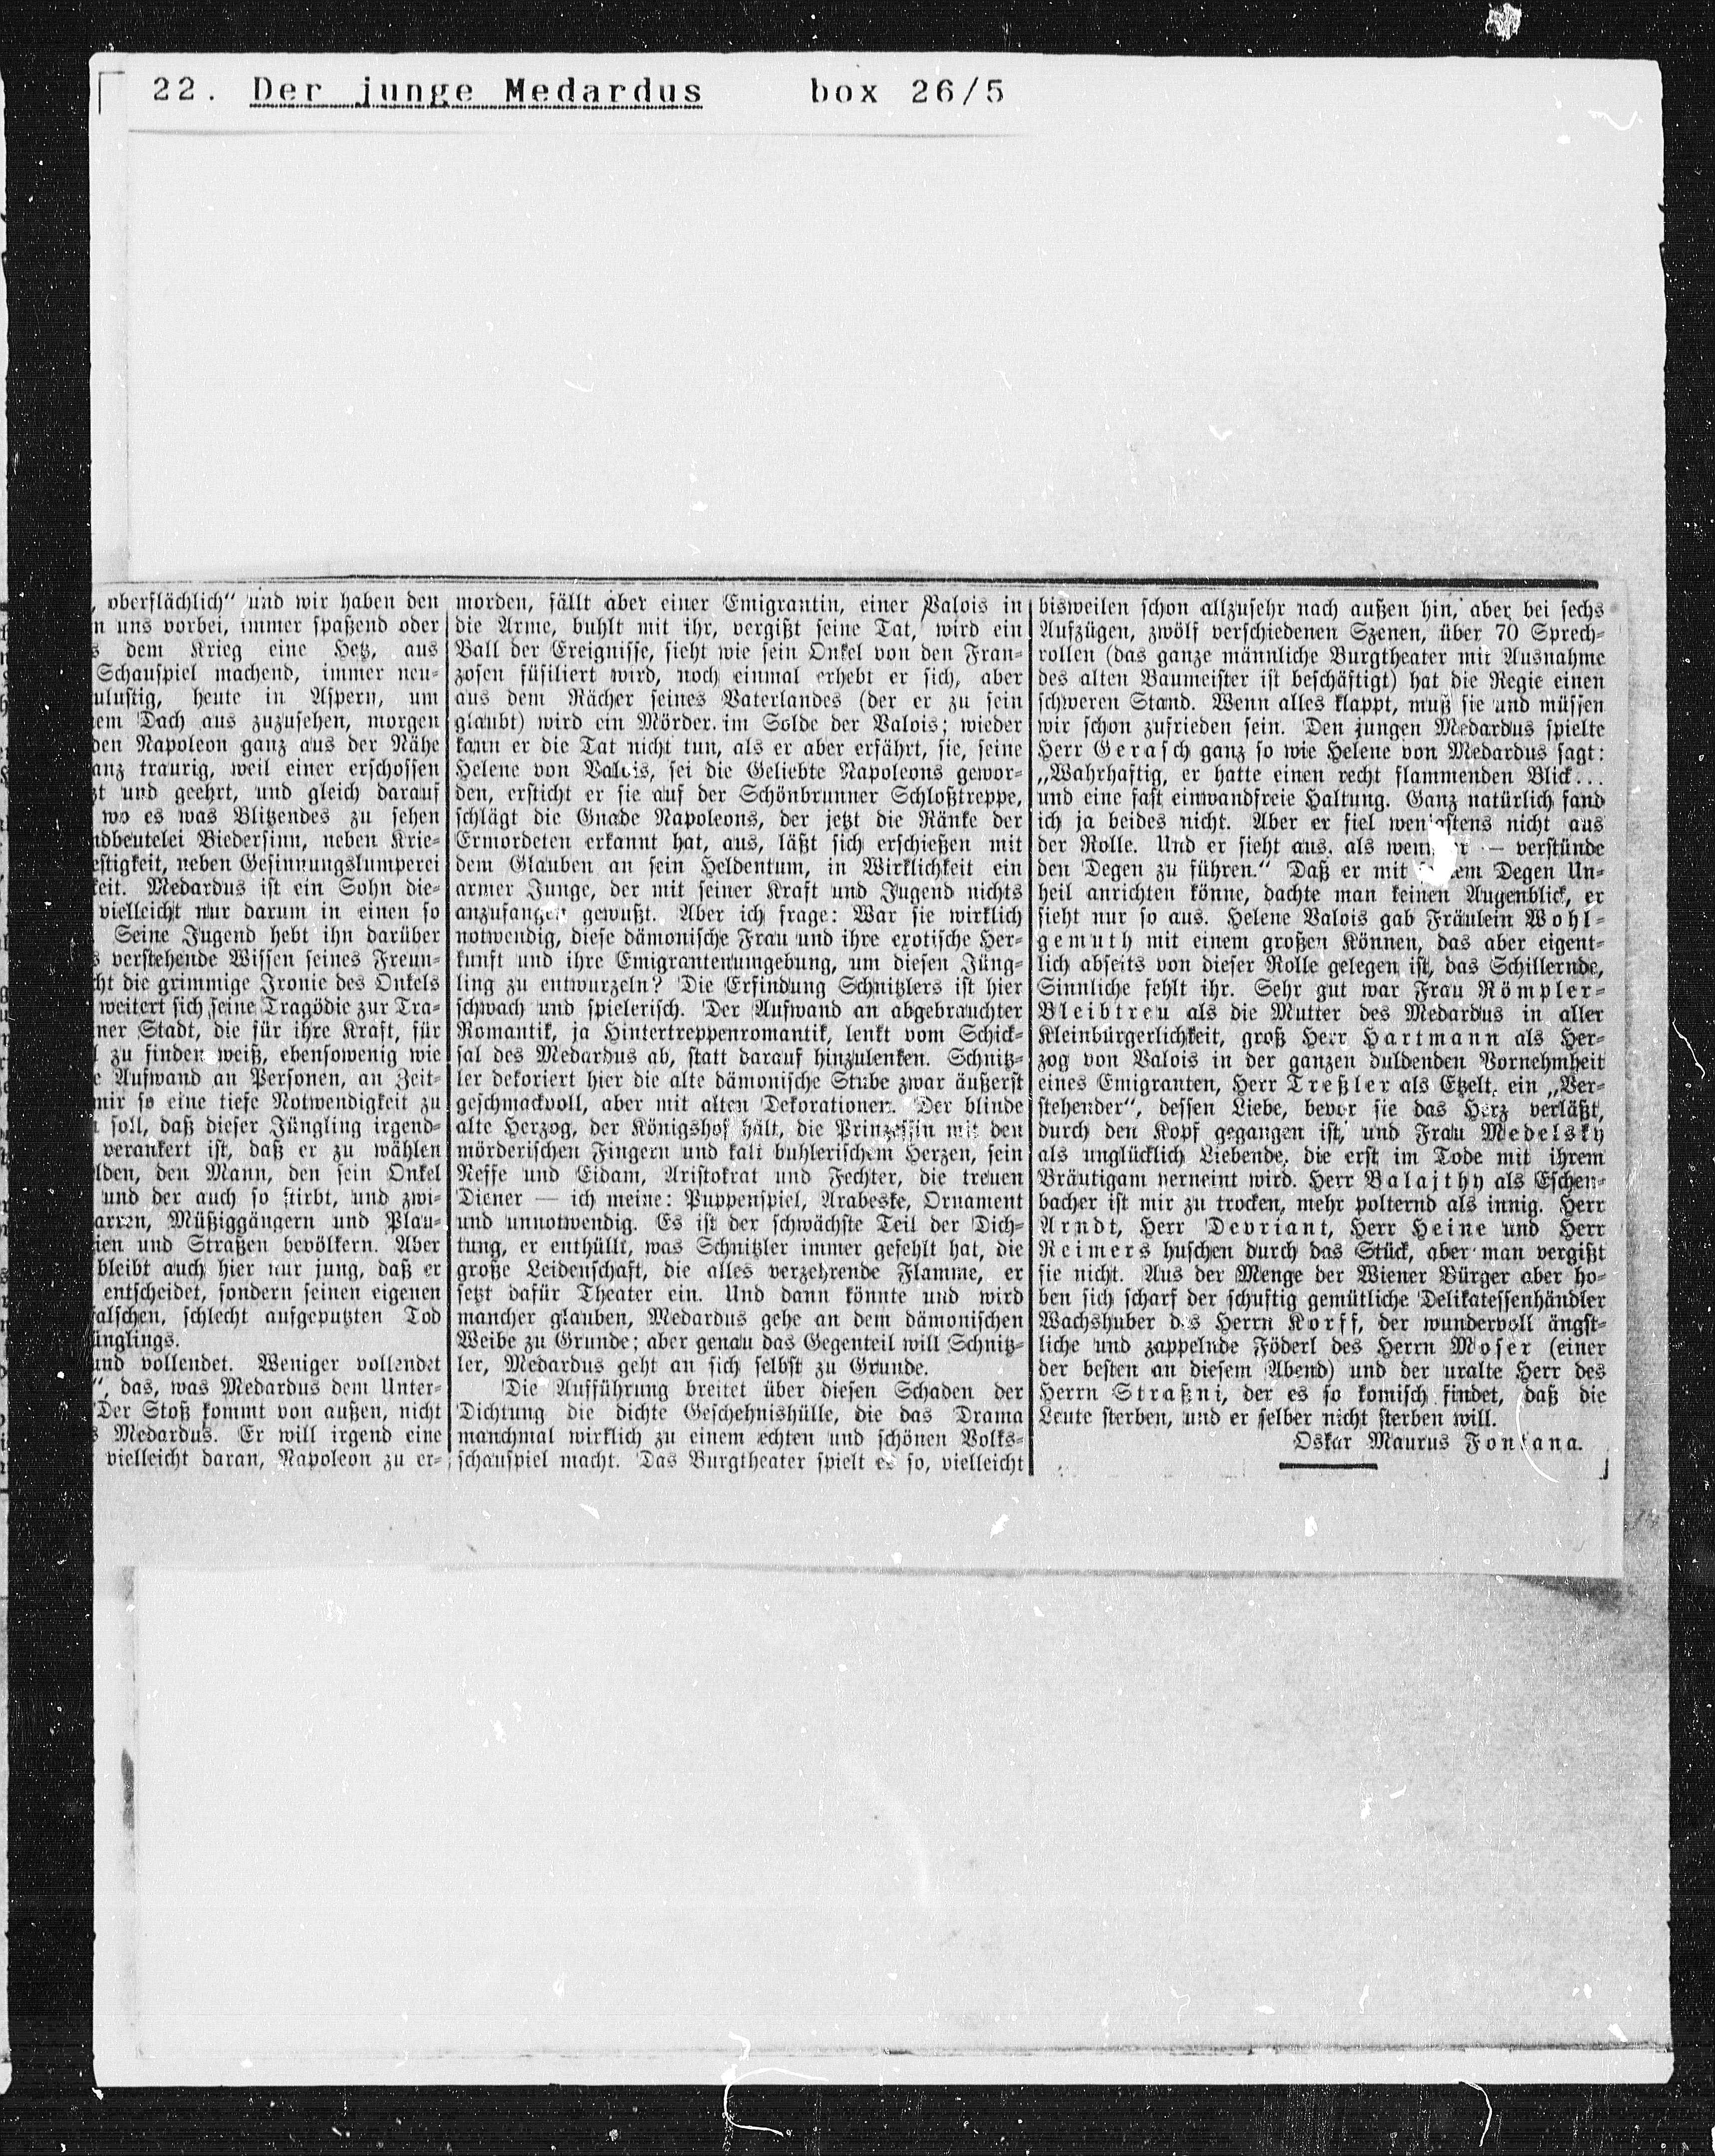 22. Der junge Medardus box 26/5
, oberflächlich“ und wir haben den
n uns vorbei, immer spaßend oder
s dem Krieg eine Hetz, aus
Schauspiel machend, immer neu-
ulustig, heute in Aspern, um
em Dach aus zuzusehen, morgen
den Napoleon ganz aus der Nähe
anz traurig, weil einer erschossen
zt und geehrt, und gleich darauf
wo es was Blitzendes zu sehen
ndbeutelei Biedersinn, neben Krie-
estigkeit, neben Gesinnungslumperei
keit. Medardus ist ein Sohn die-
vielleicht nur darum in einen so
Seine Jugend hebt ihn darüber
s verstehende Wissen seines Freun-
cht die grimmige Ironie des Onkels
weitert sich seine Tragödie zur Tra-
ner Stadt, die für ihre Kraft, für
l zu finden weiß, ebensowenig wie
e Aufwand an Personen, an Zeit-
mir so eine tiefe Notwendigkeit zu
soll, daß dieser Jüngling irgend-
verankert ist, daß er zu wählen
lden, den Mann, den sein Onkel
und der auch so stirbt, und zwi-
arren, Müßiggängern und Plau-
ien und Straßen bevölkern. Aber
bleibt auch hier nur jung, daß er
entscheidet, sondern seinen eigenen
falschen, schlecht aufgeputzten Tod
ünglings.
und vollendet. Weniger vollendet
“, das, was Medardus dem Unter-
Der Stoß kommt von außen, nicht
s Medardus. Er will irgend eine
vielleicht daran, Napoleon zu er-
morden, fällt aber einer Emigrantin, einer Valois in
die Arme, buhlt mit ihr, vergißt seine Tat, wird ein
Ball der Ereignisse, sieht wie sein Onkel von den Fran-
zosen füsiliert wird, noch einmal erhebt er sich, aber
aus dem Rächer seines Vaterlandes (der er zu sein
glaubt) wird ein Mörder im Solde der Valois; wieder
kann er die Tat nicht tun, als er aber erfährt, sie, seine
Helene von Valois, sei die Geliebte Napoleons gewor-
den, ersticht er sie auf der Schönbrunner Schloßtreppe,
schlägt die Gnade Napoleons, der jetzt die Ränke der
Ermordeten erkannt hat, aus, läßt sich erschießen mit
dem Glauben an sein Heldentum, in Wirklichkeit ein
armer Junge, der mit seiner Kraft und Jugend nichts
anzufangen gewußt. Aber ich frage: War sie wirklich
notwendig, diese dämonische Frau und ihre exotische Her-
kunft und ihre Emigrantenumgebung, um diesen Jüng-
ling zu entwurzeln? Die Erfindung Schnitzlers ist hier
schwach und spielerisch. Der Aufwand an abgebrauchter
Romantik, ja Hintertreppenromantik, lenkt vom Schick-
sal des Medardus ab, statt darauf hinzulenken. Schnitz-
ler dekoriert hier die alte dämonische Stube zwar äußerst
geschmackvoll, aber mit alten Dekorationen. Der blinde
alte Herzog, der Königshof hält, die Prinzessin mit den
mörderischen Fingern und kalt buhlerischem Herzen, sein
Neffe und Eidam, Aristokrat und Fechter, die treuen
Diener — ich meine: Puppenspiel, Arabeske, Ornament
und unnotwendig. Es ist der schwächste Teil der Dich-
tung, er enthüllt, was Schnitzler immer gefehlt hat, die
große Leidenschaft, die alles verzehrende Flamme, er
setzt dafür Theater ein. Und dann könnte und wird
mancher glauben, Medardus gehe an dem dämonischen
Weibe zu Grunde; aber genau das Gegenteil will Schnitz-
ler, Medardus geht an sich selbst zu Grunde.
Die Aufführung breitet über diesen Schaden der
Dichtung die dichte Geschehnishülle, die das Drama
manchmal wirklich zu einem echten und schönen Volks-
schauspiel macht. Das Burgtheater spielt es so, vielleicht
bisweilen schon allzusehr nach außen hin, aber bei sechs
Aufzügen, zwölf verschiedenen Szenen, über 70 Sprech-
rollen (das ganze männliche Burgtheater mit Ausnahme
des alten Baumeister ist beschäftigt) hat die Regie einen
schweren Stand. Wenn alles klappt, muß sie und müssen
wir schon zufrieden sein. Den jungen Medardus spielte
Herr Gerasch ganz so wie Helene von Medardus sagt:
„Wahrhaftig, er hatte einen recht flammenden Blick...
und eine fast einwandfreie Haltung. Ganz natürlich fand
ich ja beides nicht. Aber er fiel wenigstens nicht aus
der Rolle. Und er sieht aus, als wenn er — verstünde
den Degen zu führen.“ Daß er mit dem Degen Un-
heil anrichten könne, dachte man keinen Augenblick, er
sieht nur so aus. Helene Valois gab Fräulein Wohl-
gemuth mit einem großen Können, das aber eigent-
lich abseits von dieser Rolle gelegen ist, das Schillernde,
Sinnliche fehlt ihr. Sehr gut war Frau Römpler-
Bleibtreu als die Mutter des Medardus in aller
Kleinbürgerlichkeit, groß Herr Hartmann als Her-
zog von Valois in der ganzen duldenden Vornehmheit
eines Emigranten, Herr Treßler als Etzelt, ein „Ver-
stehender“, dessen Liebe, bevor sie das Herz verläßt,
durch den Kopf gegangen ist, und Frau Medelsky
als unglücklich Liebende, die erst im Tode mit ihrem
Bräutigam verneint wird. Herr Balajthy als Eschen-
bacher ist mir zu trocken, mehr polternd als innig. Herr
Arndt, Herr Devriant, Herr Heine und Herr
Reimers huschen durch das Stück, aber man vergißt
sie nicht. Aus der Menge der Wiener Bürger aber ho-
ben sich scharf der schuftig gemütliche Delikatessenhändler
Wachshuber des Herrn Korff, der wundervoll ängst-
liche und zappelnde Föderl des Herrn Moser (einer
der besten an diesem Abend) und der uralte Herr des
Herrn Straßni, der es so komisch findet, daß die
Leute sterben, und er selber nicht sterben will.
Oskar Maurus Fontana.